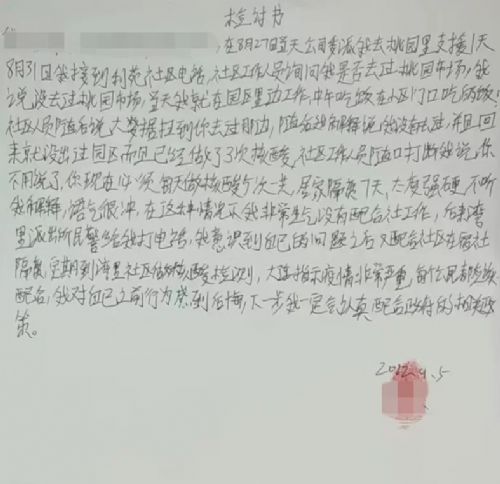 检讨书
，在8月27日当天公司委派我去桃园里支援1天
8月31日我接到利苑社区电话，社区工作人员询问我是否去过桃园市场，我
说没去过桃园市场，当天我就在园区里边工作，中午吃饭在小区门口吃的饭，
社区人员随后说大数据扫到你去过那边，随后我解释说我没有去过，并且回
来就没出过园区而且已经做了3次核酸，社区工作人员随口打断我说，你
不用说了，你现在必须每天做核酸 次一共，居家隔离7天，态度强硬，不听
我解释，语气很冲，在这种情况下我非常生气，没有配合社工作，后来湾
里派出所民警给我打电话，我意识到自己的问题之后又配合社区在居社
隔离，定期到湾里社区做核酸检测，大连指示疫情非常严重，每个居都应该
配合，我对自己之前行为感到后悔，下一步我一定会认真配合政府的相关政
策。
2022.9.5